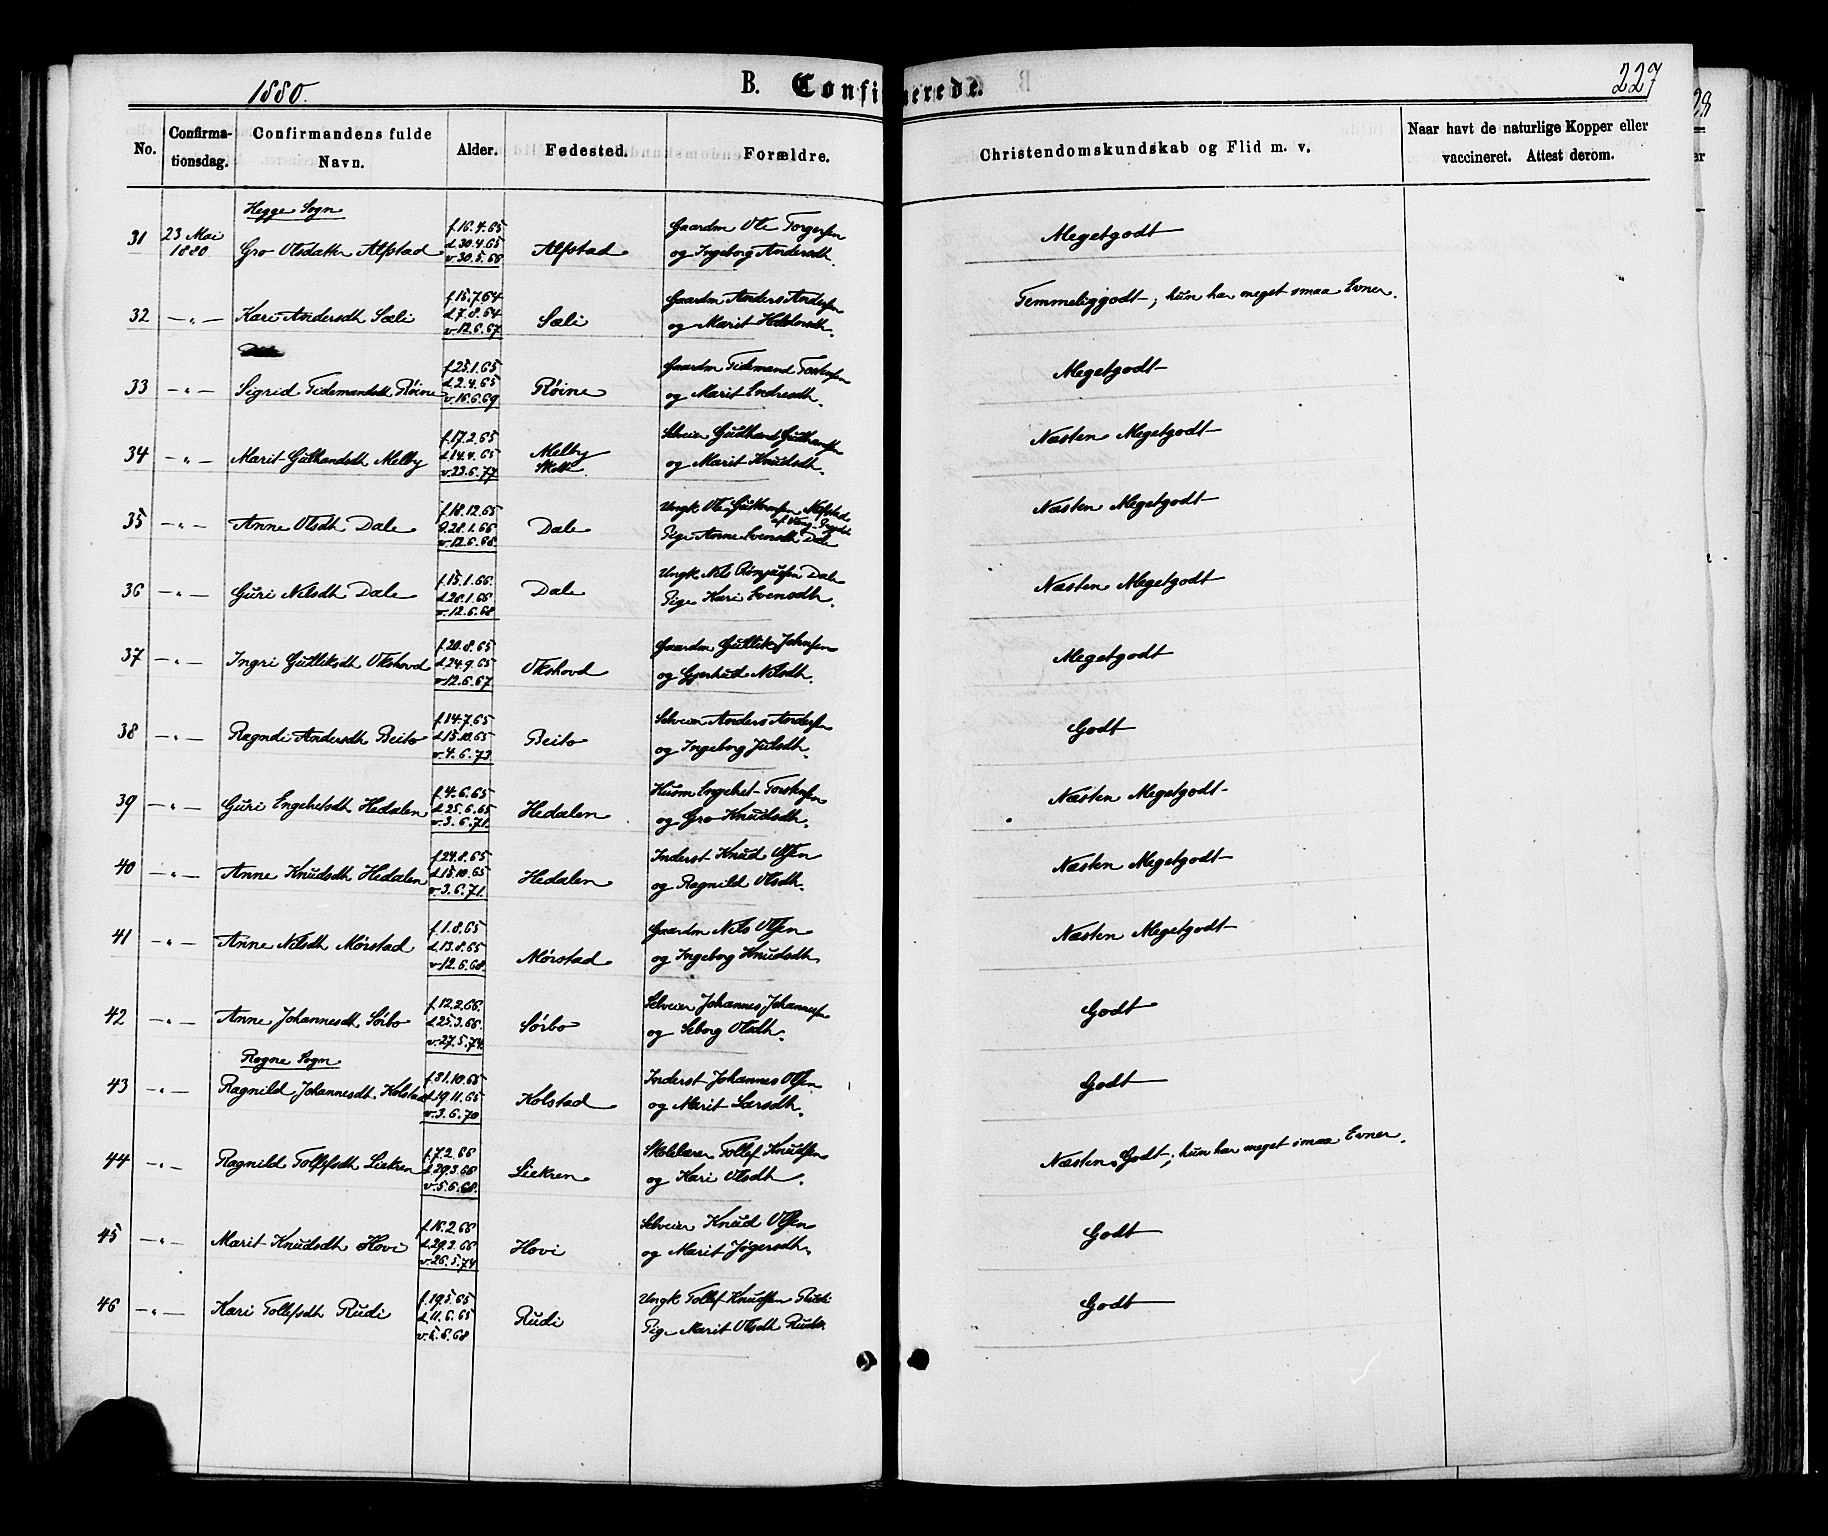 1880.
B. Confirmerede.
227
No.
Confirma-
tionsdag.
Confirmandens fulde
Navn.
Alder.
Fødested.
Forældre.
Christendomskundskab og Flid m. v.
Naar havt de naturlige Kopper eller
vaccineret. Attest derom.
Hegge Sogn
31 23 Mai 1880 Gro Olsdatter Alfstad f.16.4.65 d.30.4.65 v.30.5.68 Alfstad Gaardm Ole Torgersen og Ingeborg Andersdh. Megetgodt
32 —„— Kari Andersdh Sæli f.15.7.64 d.7.8.64 v.12.6.67 Sæli Gaardm Anders Andersen og Marit Temmeliggodt; hun har meget smaa Evner.
33 —„— Sigrid Tidemandsdh Røine f.25.1.65 d.2.4.65 v.16.6.69 Røine Gaardm Tidemand Torstensen og Marit Endresdh. Megetgodt
34 —„— Marit Gulbrandsdh Melby f.17.2.65 d.14.4.65 v.23.6.77 Melby Selveier og Marit Knudsdh. Næsten Megetgodt
35 —„— Anne Olsdh Dale f.18.12.65 d.28.1.66 v.12.6.68 Dale Ungk Ole Pige Anne Svensdh Dale Næsten Megetgodt
36 —„— Guri Nilsdh Dale f.15.1.66. d.28.1.66 v.12.6.68 Dale Ungk Nils Dale Pige Kari Svensdh. Næsten Megetgodt
37 —„— Ingri Gulliksdh Okshovd f.20.8.65 d.24.9.65 v.12.6.67 Okshovd Gaardm Gullik Johnsen og Gjertrud Nilsdh. Megetgodt
38 —„— Ragndi Andersdh Beito f.14.7.65 d.15.10.65 v.4.6.73 Beito Selveier Anders Andersen og Ingeborg Julsdh. Godt
39 —„— Guri Engebretsdh Hedalen f.4.6.65 d.25.6.65 v.3.6.71. Hedalen Husm Engebret Torstensen og Gro Knudsdh. Næsten Megetgodt
40 —„— Anne Knudsdh Hedalen f.24.8.65 d.15.10.65 v.3.6.71. Hedalen Inderst Knud Olsen og Ragnild Olsdh. Næsten Megetgodt
41 —„— Anne Nilsdh Mørstad f.1.8.65 d.13.8.65 v.12.6.68. Mørstad Gaardm Nils Olsen og Ingeborg Knudsdh. Næsten Megetgodt
42 —„— Anne Johannesdh Sørbo f.12.2.66. d.25.3.66. v.27.5.74. Sørbo Selveier Johannes Johannesen og Siborg Olsdh. Godt
Rogne Sogn
43 —„— Ragnild Johannesdh. Kolstad f.31.10.65 d.19.11.65 v.3.6.70 Kolstad Inderst Johannes Olsen og Marit Larsdh. Godt
44 —„— Ragnild Tollefsdh Liekren f.7.2.66 d.29.3.66 v.5.6.68. Liekren Skolelærer Tollef Knudsen og Kari Olsdh. Næsten Godt; hun har meget smaa Evner.
45 —„— Marit Knudsdh Hovi f.16.2.66 d.29.3.66 v.26.5.74 Hovi Selveier Knud Olsen og Marit Jøgersdh. Godt
46 —„— Kari Tollefsdh Rudi f.19.5.65 d.11.6.65 v.5.6.68 Rudi Ungk Tollef Knudsen Rudi Pige Marit Olsdh Godt